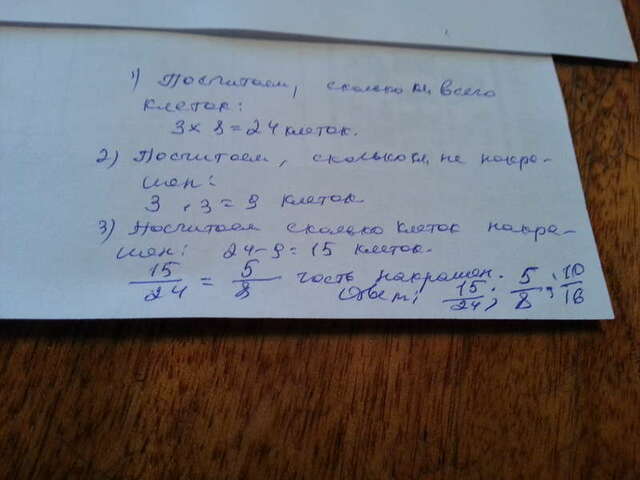 1) Посчитаем, сколько кл. всего
клеток:
3 x 8 = 24 клеток.
2) Посчитаем, сколько кл. не накра-
шен:
3 . 3 = 9 клеток
3) Посчитаем сколько клеток накра-
шен: 24 - 9 = 15 клеток.
15/24 = 5/8 часть накрашен.
Ответ: 15/24; 5/8; 10/16